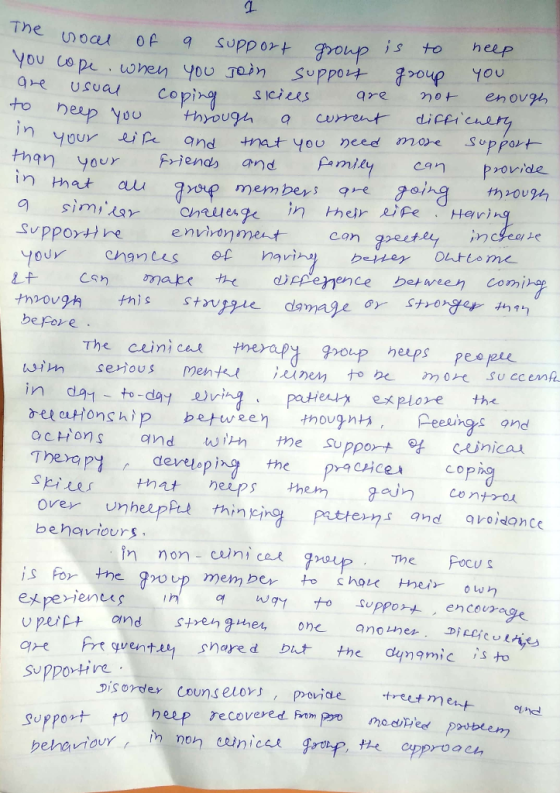 1
The goal of a support group is to help
you cope. when you Join support group you
are usual coping skills are not enough
to help you through a current difficulty
in your life and that you need more support
than your friends and family can provide
in that all group members are going through
a similar challenge in their life. Having
supportive environment can greetly increase
your chances of having better outcome
It can make the difference between coming
through this struggle damage or stronger than
before.
The clinical therapy group helps people
with serious mental illness to be more successful
in day-to-day living. patients explore the
relationship between thoughts, Feelings and
actions and with the support of clinical
Therapy, developing the practical coping
skills that helps them gain control
over unhelpful thinking patterns and avoidance
behaviours.
In non-clinical group. The Focus
is for the group member to share their own
experiences in a way to support, encourage
uplift and strengthen one another. Difficulties
are frequently shared but the dynamic is to
supportive.
Disorder counselors, provide treetment and
support to help recovered from modified problem
behaviour, in non clinical group, the approach